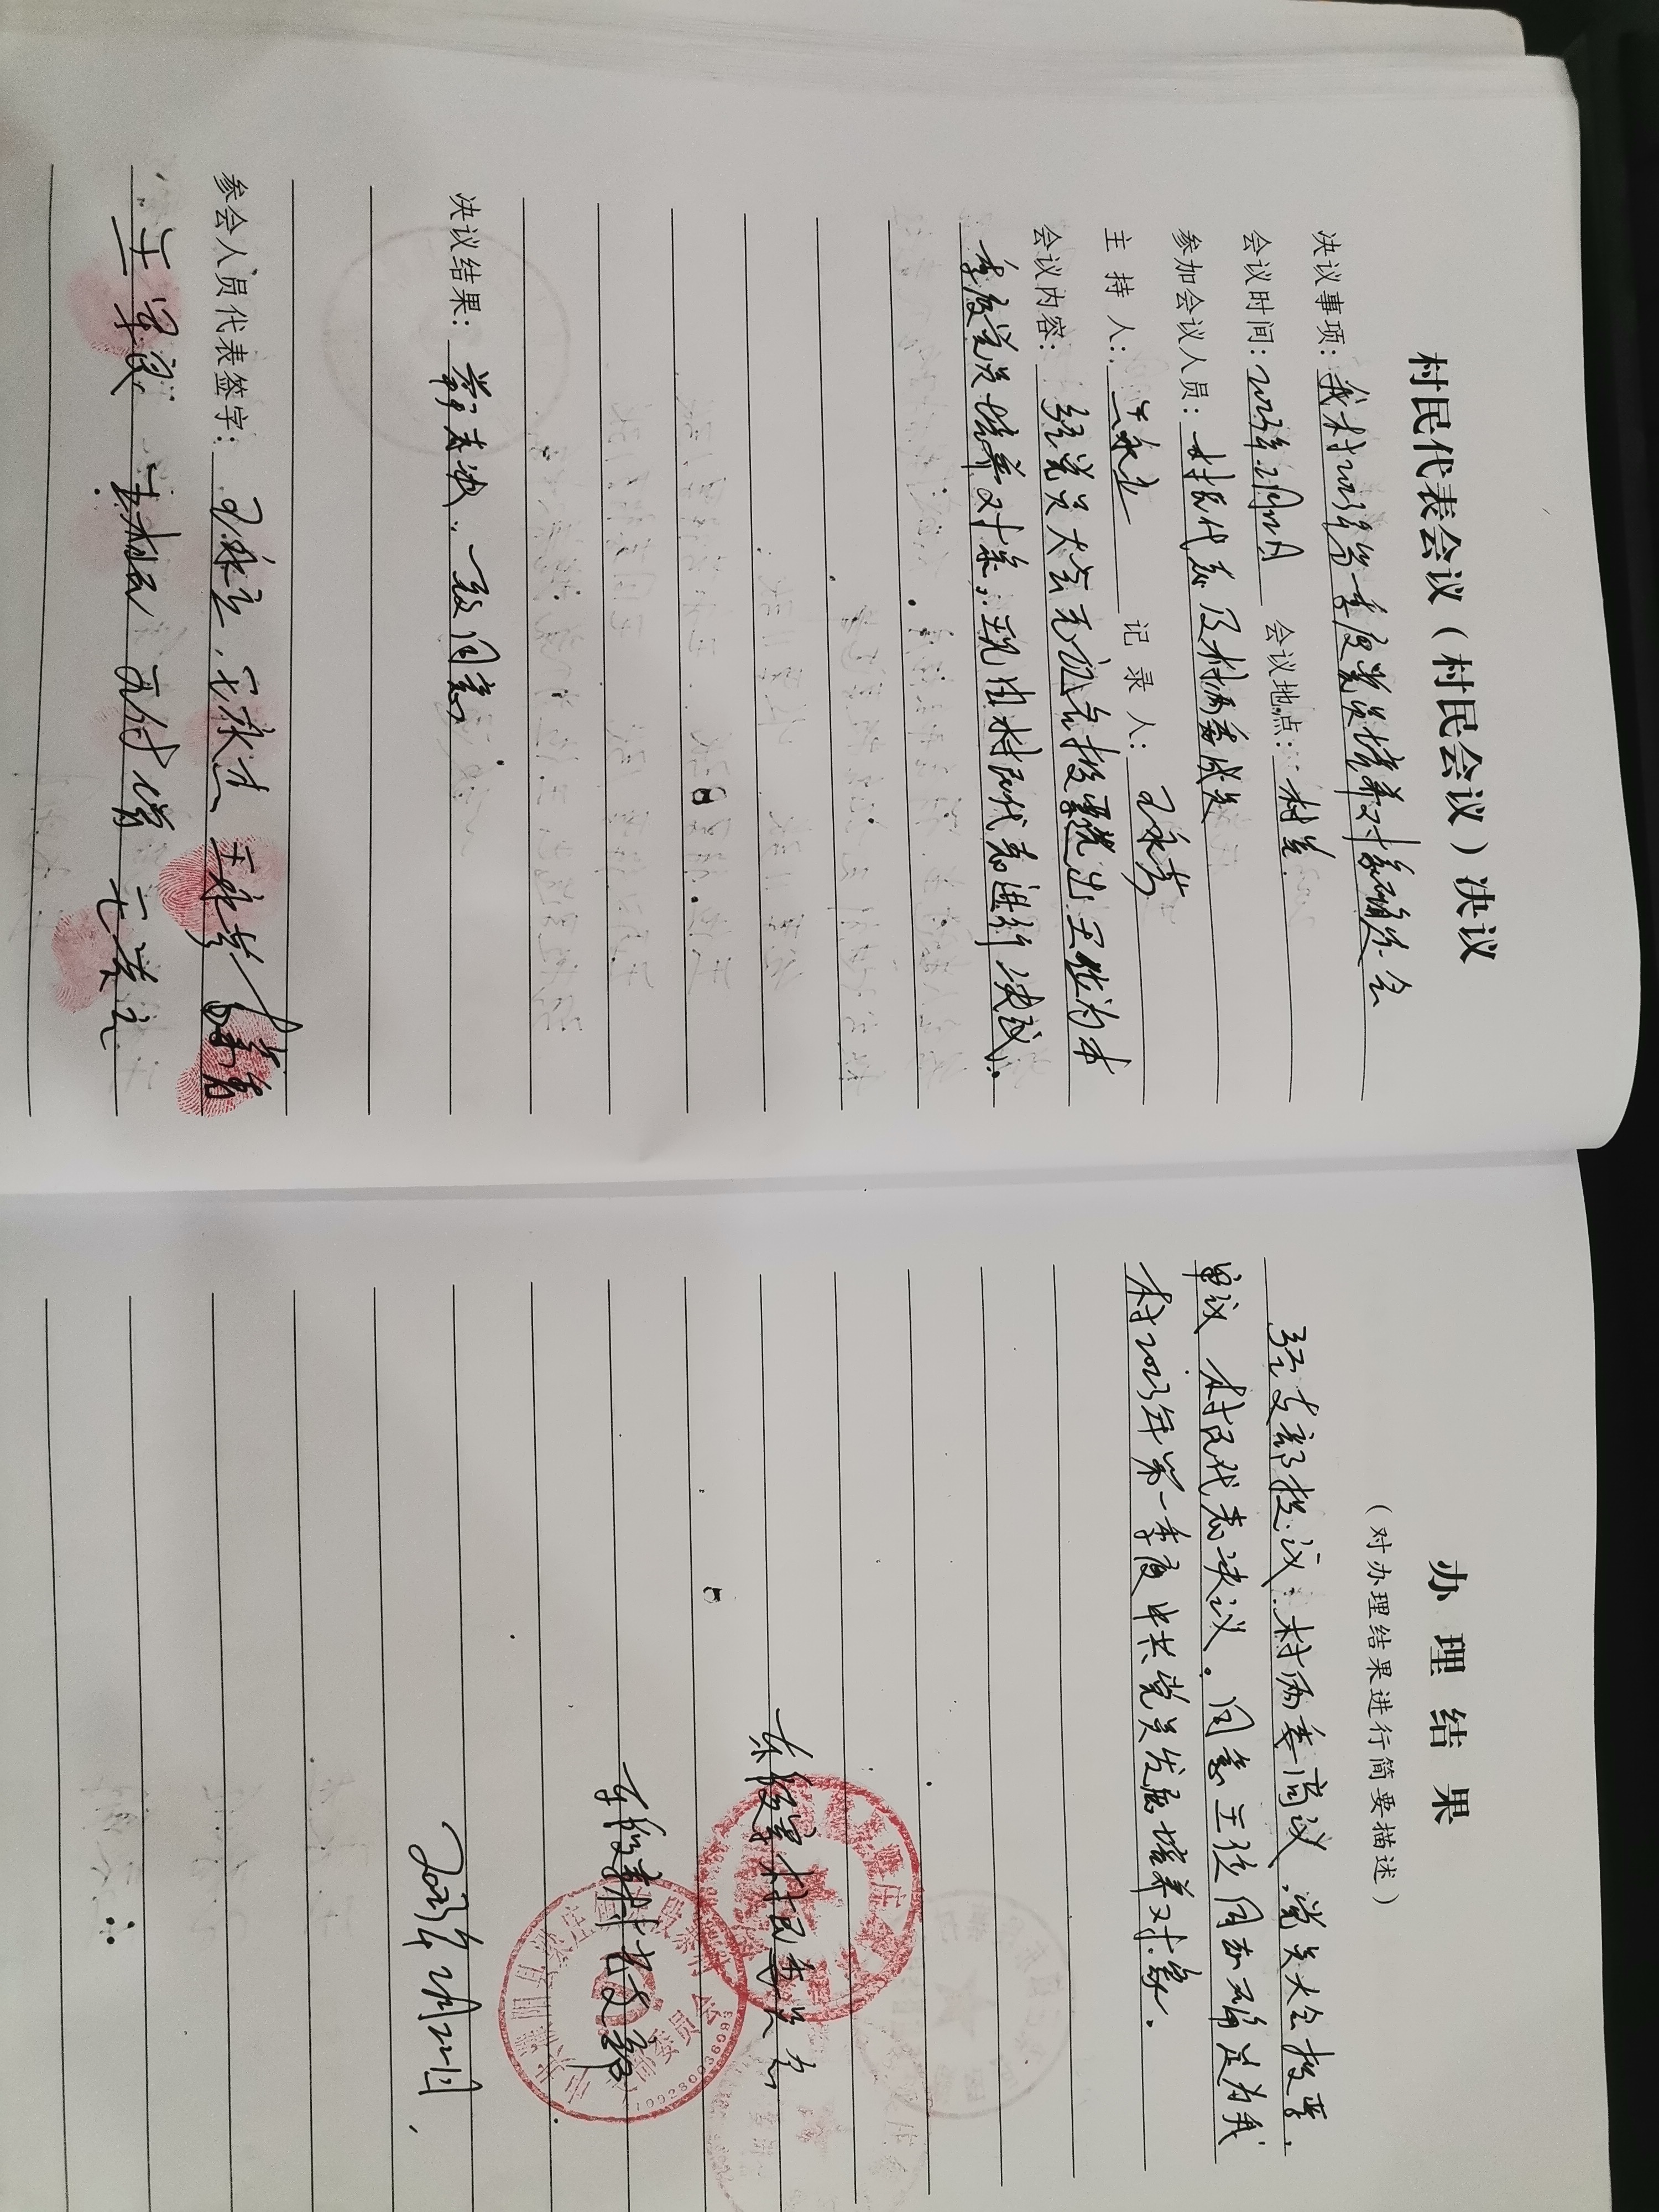 村民代表会议（村民会议）决议
决议事项：我村2023年第一季度党员培养对象确定会
会议时间：2023年2月22日 会议地点：村室.
参加会议人员：村民代表及村两委成员
主持人：王永立 记录人：王永芳
会议内容：经党员大会无记名投票选出王位为本
季度党员培养对象，现由村民代表进行决议。
决议结果：举手表决，一致同意
参会人员代表签字：王永立，王永杰 王永芳
王军良 王付增
办理结果
（对办理结果进行简要描述）
经支部提议，村两委商议，党员大会投票，
审议 村民代表决议。同意王位同志确定为我
村2023年第一季度中共党员发展培养对象。
东段寨村民委员会
东段寨村党支部
2023年2月22日